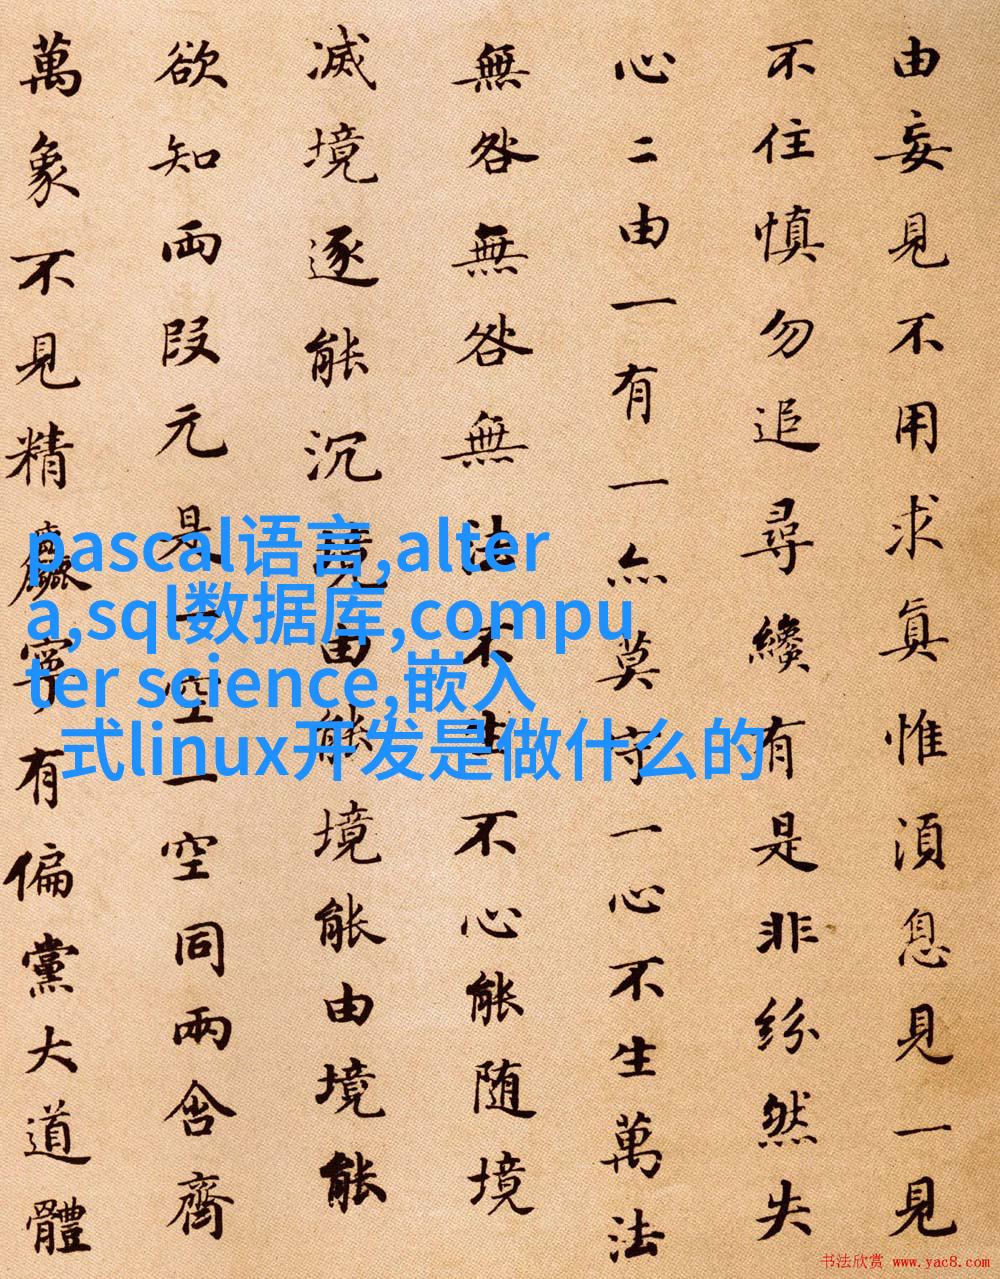 由妄見不用求真惟湏息見一見
不住慎勿追尋纔有是非紛然失
心二由一有一亦莫守一心不生萬法
無咎無咎無法不生不心能随境
滅境逐能沉境由能境能由境能
欲知两段元是一空一空同兩含齊
萬象不見精麤寧有偏黨大道體
pascal语言,alter
a,sql数据库,compu
ter science,嵌入
式linux开发是做什么的
书法欣赏 www.yac8.com